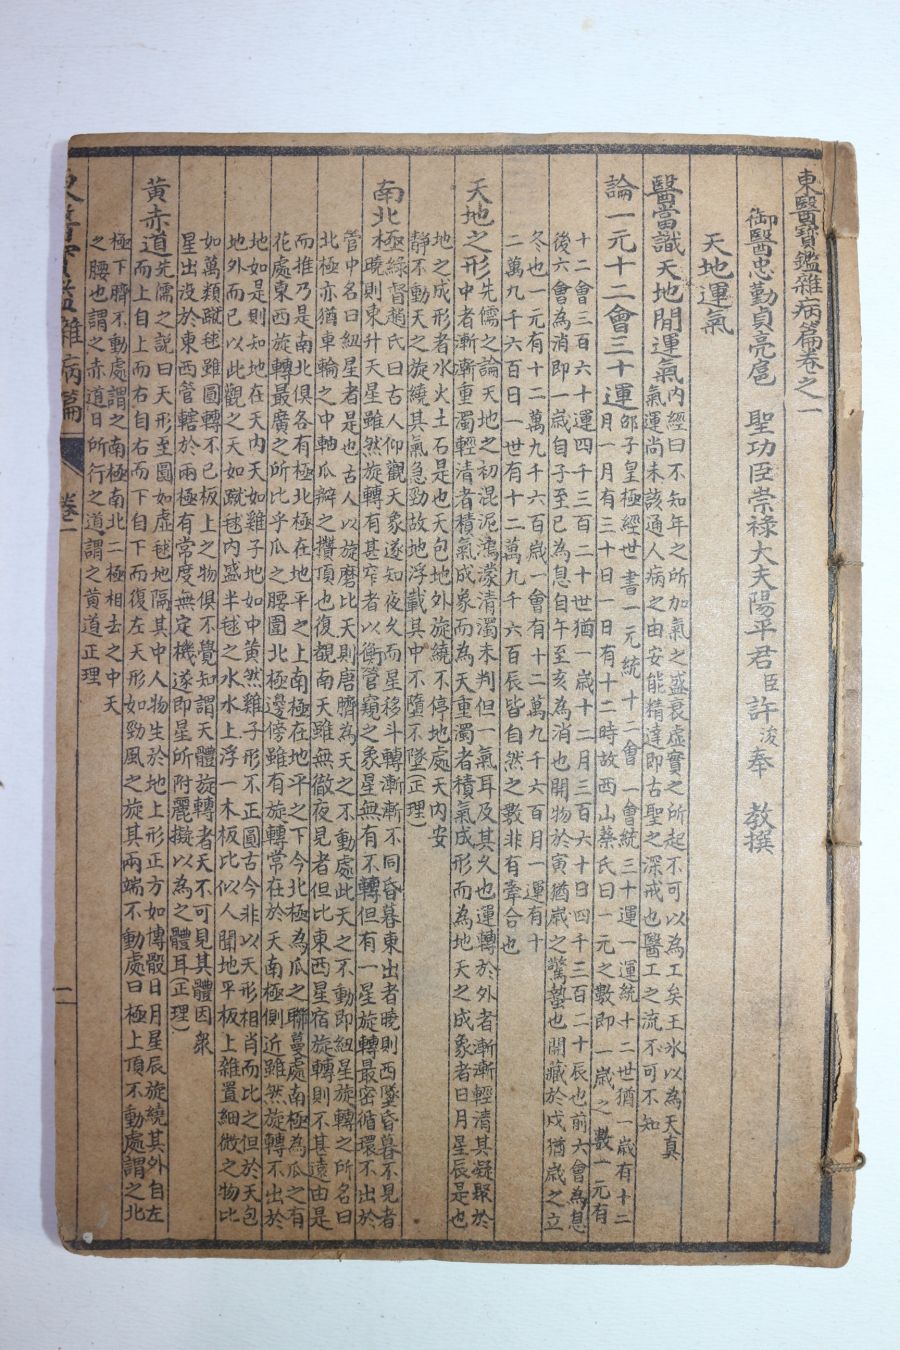 東醫寶鑑雜病篇卷之一
御醫忠勤貞亮扈 聖功臣崇祿大夫陽平君臣許浚奉 教撰
天地運氣
醫當識天地間運氣
內經曰不知年之所加氣之盛衰虛實之所起不可以為工矣王氷以為天真
氣運尚未該通人病之由安能精達即古聖之深戒也醫工之流不可不知
論一元十二會三十運
邵子皇極經世書一元統十二會一會統三十運一運統十二世猶一歲有十二
月一月有三十日一日有十二時故西山蔡氏曰一元之數即一歲之數一元有
十二會三百六十運四千三百二十世猶一歲十二月三百六十日四千三百二十辰也前六會為息
後六會為消即一歲自子至巳為息自午至亥為消也開物於寅猶歲之驚蟄也閉藏於戌猶歲之立
冬也一元有十二萬九千六百歲一會有十二萬九千六百月一運有十
二萬九千六百日一世有十二萬九千六百辰皆自然之數非有牽合也
天地之形
先儒之論天地之初混沌鴻濛清濁未判但一氣耳及其久也運轉於外者漸漸輕清其凝聚於
中者漸漸重濁輕清者積氣成象而為天重濁者積氣成形而為地天之成象者日月星辰是也
地之成形者水火土石是也天包地外旋繞不停地處天內安
靜不動天之旋繞其氣急勁故地浮載其中不墮不墜(正理)
南北極
緣督趙氏曰古人仰觀天象遂知夜久而星移斗轉漸漸不同昏暮東出者曉則西墜昏暮不見者
曉則東升天星雖然旋轉有甚窄者以衡管窺之象星無有不轉但有一星旋轉最密循環不出於
管中名曰紐星者是也古人以旋磨比天則唐臍為天之不動處此天之不動即紐星旋轉之所名曰
北極亦猶車輪之中軸瓜瓣之攢頂也復觀南天雖無徹夜見者但比東西星宿旋轉則不甚遠由是
而推乃是南北俱各有極北極在地平之上南極在地平之下今北極為瓜之聯蔓處南極為瓜之有
花處東西旋轉最廣之所比乎瓜之腰圍北極邊傍雖有旋轉常在於天南極側近雖然旋轉不出於
地如是則知地在天內天如雞子地如中黃然雞子形不正圓古今非以天形相肖而比之但於天包
地外而已以此觀之天如蹴毬內盛半毬之水水上浮一木板比似人間地平板上雜置細微之物比
如萬類蹴毬雖圓轉不已板上之物俱不覺知謂天體旋轉者天不可見其體因衆
星出沒於東西管轄於兩極有常度無定機遂即星所附麗擬以為之體耳(正理)
黃赤道
先儒之說曰天形至圓如虛毬地隔其中人物生於地上形正方如博骰日月星辰旋繞其外自左
而上自上而右自右而下自下而復左天形如勁風之旋其兩端不動處曰極上頂不動處謂之北
極下臍不動處謂之南極南北二極相去之中天
之腰也謂之赤道日所行之道謂之黃道正理
東醫寶鑑雜病篇 卷一
一